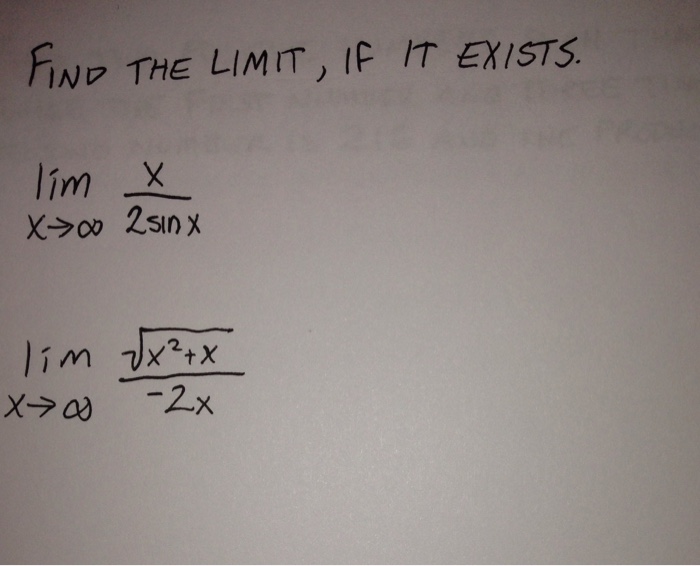 FIND THE LIMIT, IF IT EXISTS.
lim x→∞ x / 2 sin x
lim x→∞ √x²+x / -2x